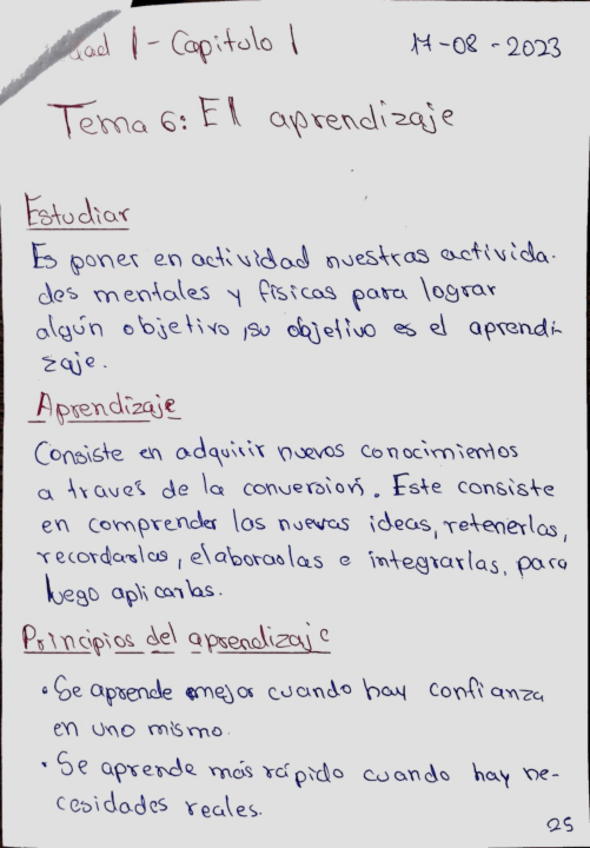 dad 1 - Capitulo 1 17-08-2023
Tema 6: El aprendizaje
Estudiar
Es poner en actividad nuestras activida-
des mentales y físicas para lograr
algún objetivo, su objetivo es el aprendi-
zaje.
Aprendizaje
Consiste en adquirir nuevos conocimientos
a través de la conversión. Este consiste
en comprender las nuevas ideas, retenerlas,
recordarlas, elaborarlas e integrarlas, para
luego aplicarlas.
Principios del aprendizaje
• Se aprende mejor cuando hay confianza
en uno mismo.
• Se aprende más rápido cuando hay ne-
cesidades reales.
25